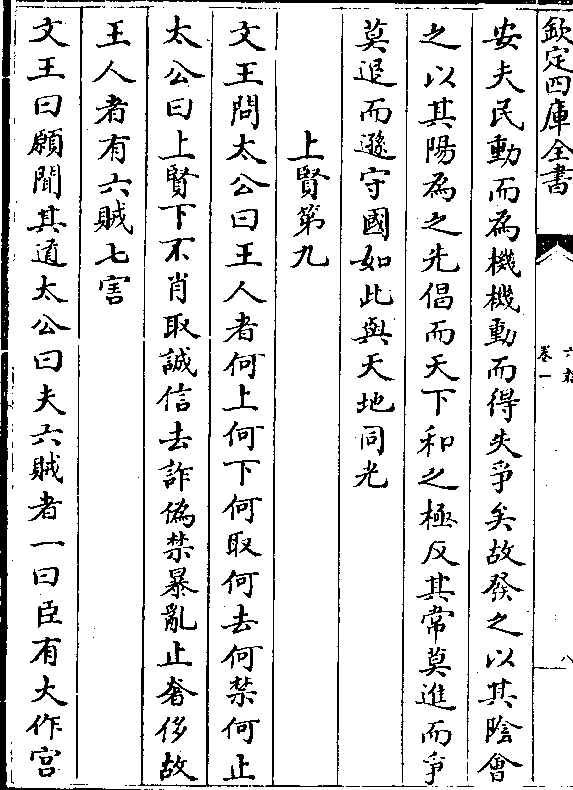 欽定四庫全書
六韜
卷一
八
安夫民動而為機機動而得失爭矣故發之以其陰會
之以其陽為之先倡而天下和之極反其常莫進而爭
莫退而遜守國如此與天地同光
上賢第九
文王問太公曰王人者何上何下何取何去何禁何止
太公曰上賢下不肖取誠信去詐偽禁暴亂止奢侈故
王人者有六賊七害
文王曰願聞其道太公曰夫六賊者一曰臣有大作宫